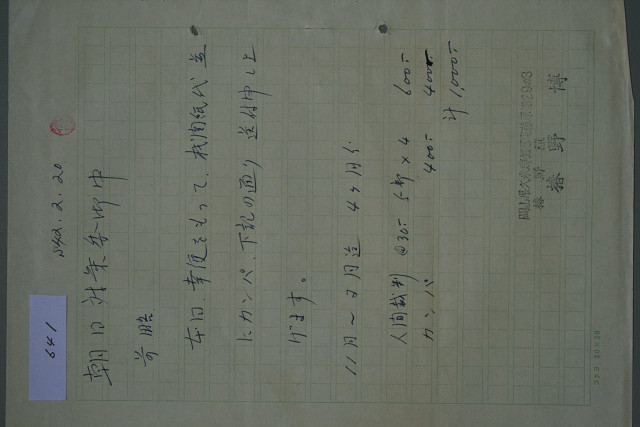 641
S42.2.20
朝日対策委御中
前略
本日、幸便をもって、機関紙代並
にカンパ、下記の通り送付申し上
げます。
11月~2月迄 4ヶ月分
人間裁判 @30- 5部×4 600-
カンパ 400- 400-
計1,000-
椿野 博